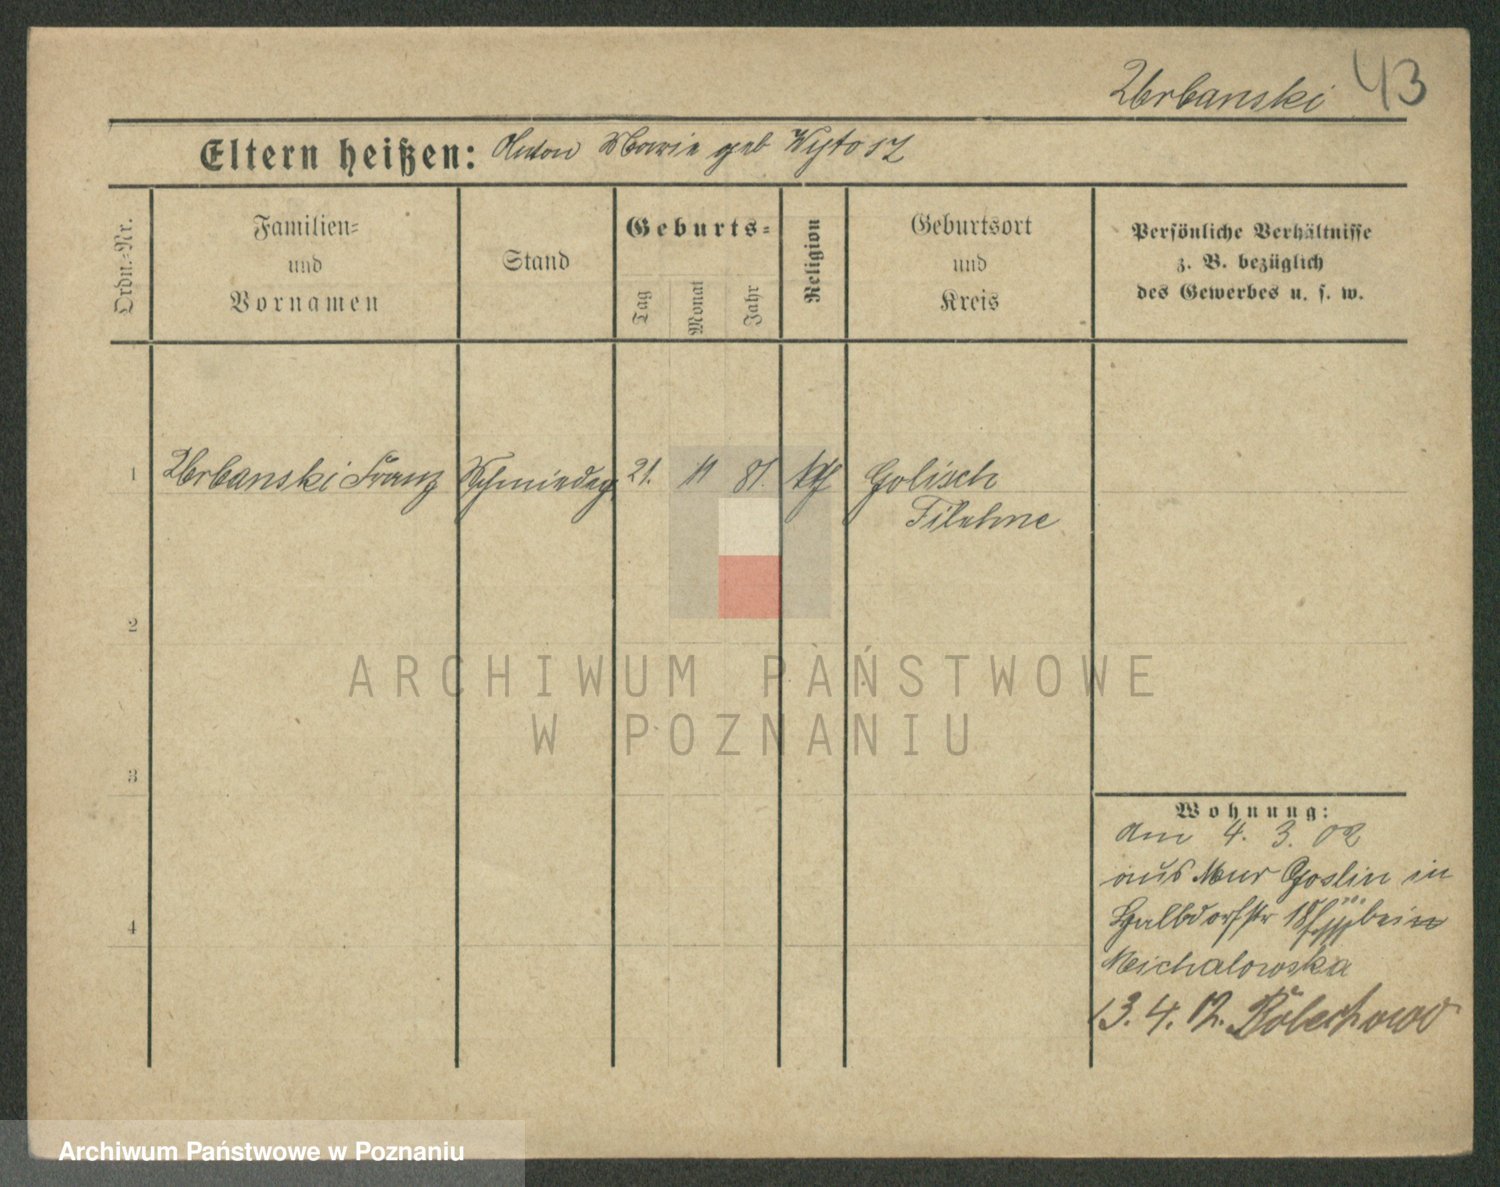 Urbanski 43
Eltern heißen: Anton Marie geb Wytosz
Ordn.-Nr.
Familien-
und
Vornamen
Stand
Geburts-
Tag
Monat
Jahr
Religion
Geburtsort
und
Kreis
Persönliche Verhältnisse
z. B. bezüglich
des Gewerbes u. s. w.
1 Urbanski Franz Schmiedeg 21. 11 81. kth Golisch
Filehne
2
ARCHIWUM PAŃSTWOWE
W POZNANIU
3
Wohnung:
am 4. 3. 02
aus Mur Goslin in
Halbdorfstr 18 bei
4
Michalowska
13. 4. 12. Bolechowo
Archiwum Państwowe w Poznaniu